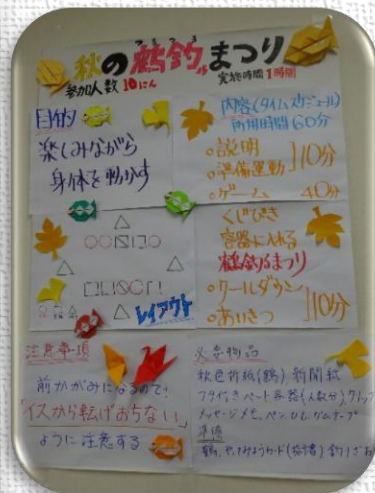 つるつる
秋の鶴釣りまつり
参加人数 10にん
実施時間 1時間
目的
楽しみながら
身体を動かす
内容(タイムスケジュール)
所用時間60分
○説明
○準備運動 ]10分
○ゲーム 40分
くじびき
容器に入れる
鶴釣るまつり
○クールダウン
○あいさつ ]10分
レイアウト
注意事項
前かがみになるので!
「イスから転げおちない」
ように注意する
必要物品
秋色折紙(鶴)、新聞紙
フタ付きペート容器(人数分)、クリップ
メッセージメモ、ペン、ひも、
準備